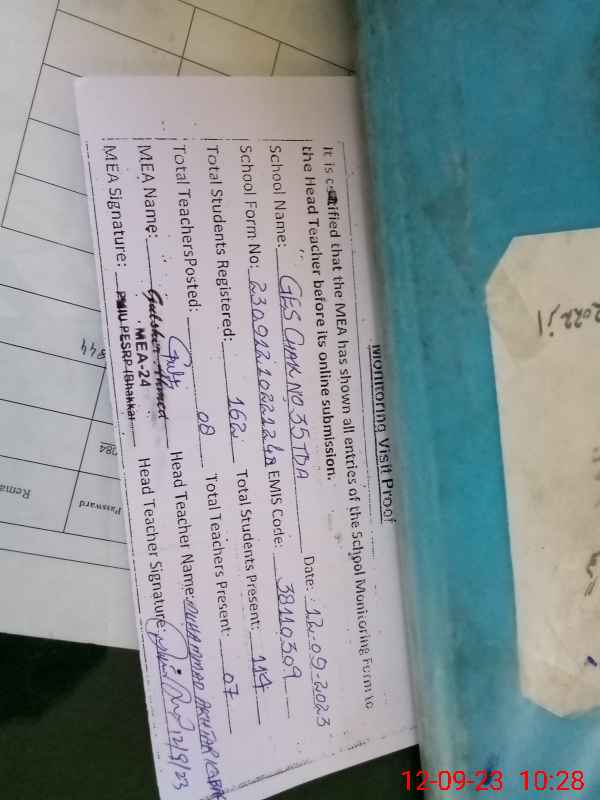 Monitoring Visit Proof
It is certified that the MEA has shown all entries of the School Monitoring Form to
the Head Teacher before its online submission.
School Name: GES CHAK NO 35 TDA Date: 12-09-2023
School Form No: EMIS Code: 38110309
Total Students Registered: 162 Total Students Present: 114
Total TeachersPosted: 08 Total Teachers Present: 07
MEA Name: Gulsher Ahmed Head Teacher Name: MUHAMMAD AKHTAR IQBAL
MEA-24
MEA Signature: PMIU PESRP (Bhakkar Head Teacher Signature: 12/9/23
844
284
Password
Rema
2022
12-09-23 10:28